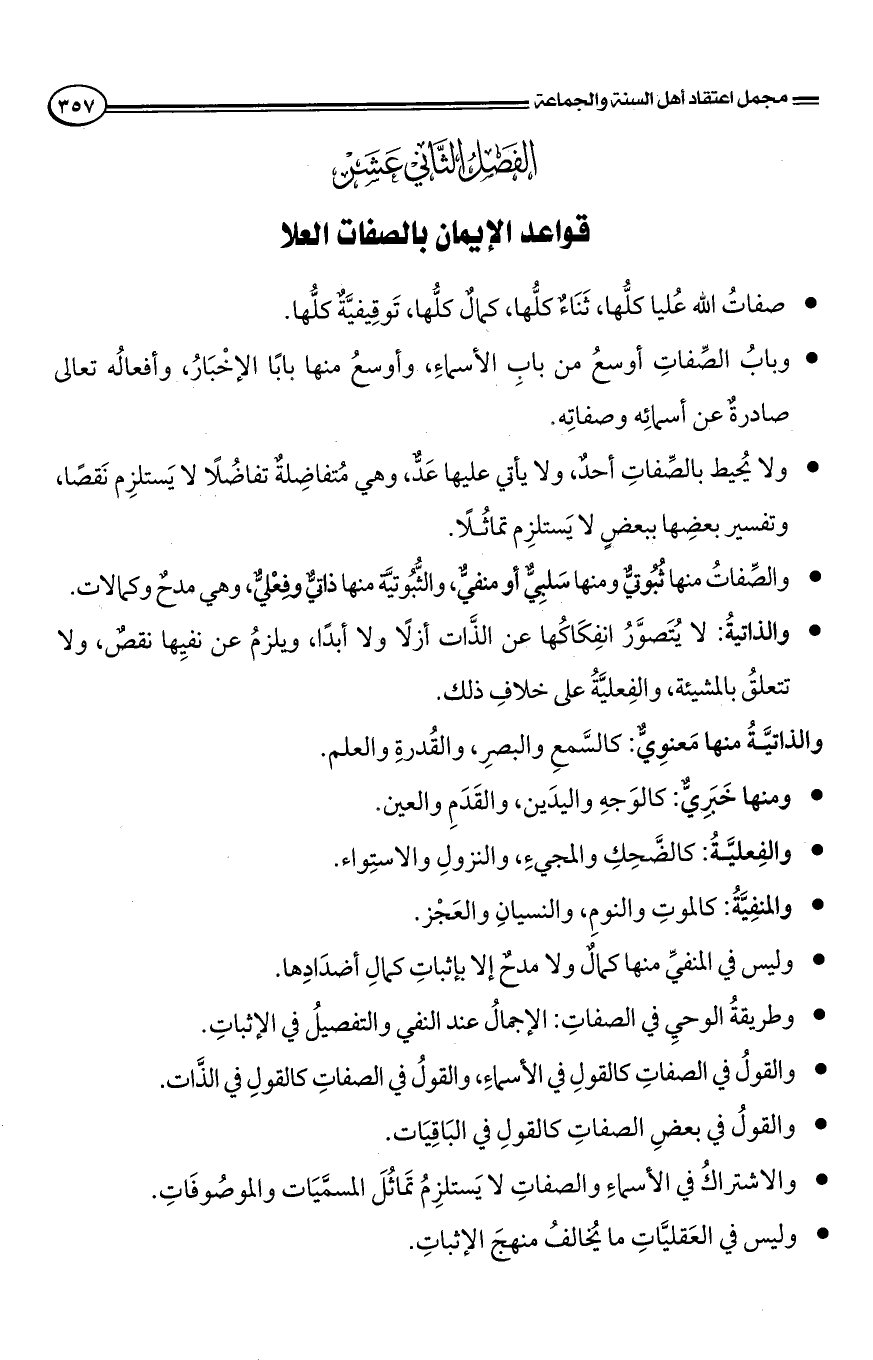 مجمل اعتقاد أهل السنة والجماعة ٣٥٧
الفَصْلُ الثَّانِي عَشَرَ
قواعد الإيمان بالصفات العلا
• صفاتُ الله عُليا كلُّها، ثَنَاءٌ كلُّها، كمالٌ كلُّها، تَوقِيفيَّةٌ كلُّها.
• وبابُ الصِّفاتِ أوسعُ من بابِ الأسماءِ، وأوسعُ منها بابًا الإخْبَارُ، وأفعالُه تعالى
صادرةٌ عن أسمائِه وصفاتِه.
• ولا يُحيط بالصِّفاتِ أحدٌ، ولا يأتي عليها عَدٌّ، وهي مُتفاضِلةٌ تفاضُلًا لا يَستلزِم نَقصًا،
وتفسير بعضِها ببعضٍ لا يَستلزِم تماثُـلًا.
• والصِّفاتُ منها ثُبُوتيٌّ ومنها سَلبِيٌّ أو منفيٌّ، والثُّبُوتيَّة منها ذاتيٌّ وفِعْليٌّ، وهي مدحٌ وكمالات.
• والذاتيةُ: لا يُتَصوَّرُ انفِكَاكُها عن الذَّات أزلًا ولا أبدًا، ويلزمُ عن نفيِها نقصٌ، ولا
تتعلقُ بالمشيئة، والفِعليَّةُ على خلافِ ذلك.
والذاتيَّـةُ منها مَعنوِيٌّ: كالسَّمعِ والبصرِ، والقُدرةِ والعلم.
• ومنها خَبَرِيٌّ: كالوَجهِ واليدَين، والقَدَمِ والعين.
• والفِعليَّـةُ: كالضَّحِكِ والمجيءِ، والنزولِ والاستِواء.
• والمنفِيَّةُ: كالموتِ والنومِ، والنسيانِ والعَجْز.
• وليس في المنفيِّ منها كمالٌ ولا مدحٌ إلا بإثباتِ كمالِ أضدَادِها.
• وطريقةُ الوحيِ في الصفاتِ: الإجمالُ عند النفي والتفصيلُ في الإثباتِ.
• والقولُ في الصفاتِ كالقولِ في الأسماءِ، والقولُ في الصفاتِ كالقولِ في الذَّات.
• والقولُ في بعضِ الصفاتِ كالقولِ في البَاقِيَات.
• والاشتراكُ في الأسماءِ والصفاتِ لا يَستلزِمُ تَماثُلَ المسمَّيَات والموصُوفَاتِ.
• وليس في العَقليَّاتِ ما يُخالفُ منهجَ الإثباتِ.